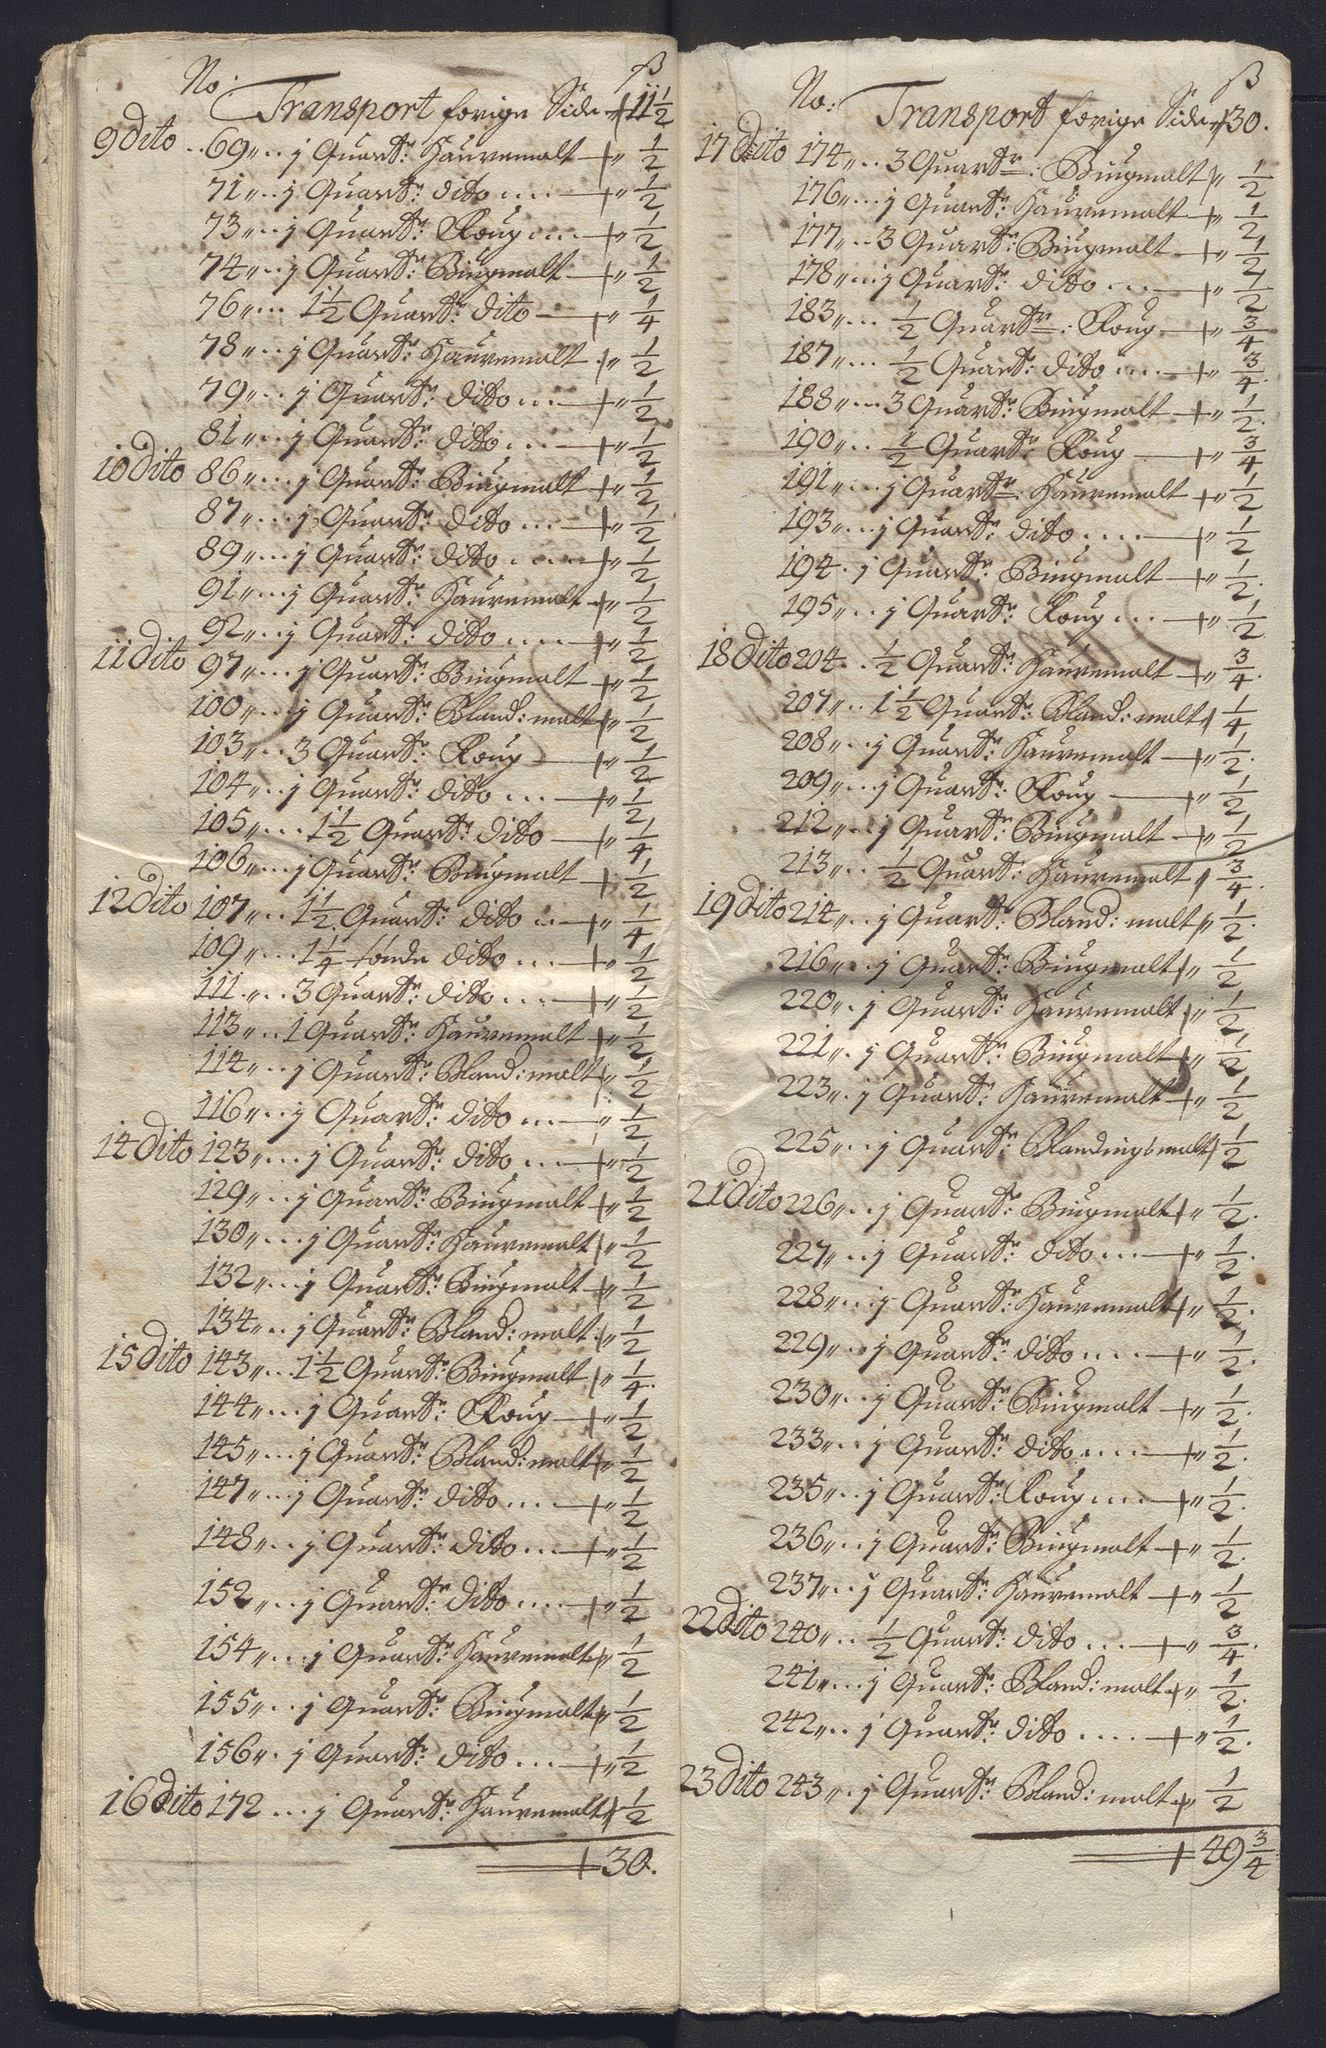 No: ß
Transport forige Side + 11 1/2
9 Dito .. 69 ,, .. j Quartr: Hauremalt + ,, 1/2
71 ,, .. j Quartr: dito .... + ,, 1/2
73 ,, .. j Quartr: Roug .... + ,, 1/2
74 ,, .. j Quartr: Biugmalt + ,, 1/2
76 ,, ... 1 1/2 Quartr: dito + ,, 1/4
78 ,, .. j Quartr: Hauremalt + ,, 1/2
79 ,, .. j Quartr: dito .... + ,, 1/2
81 ,, .. j Quartr: dito .... + ,, 1/2
10 Dito 86 ,, ... j Quartr: Biugmalt + ,, 1/2
87 ,, ... j Quartr: dito ... + ,, 1/2
89 ,, ... j Quartr: dito .... + ,, 1/2
91 ,, ... j Quartr: Hauremalt + ,, 1/2
92 ,, .. j Quartr: dito .... + ,, 1/2
11 Dito 97 ,, ... j Quartr: Biugmalt + ,, 1/2
100 ,, ... j Quartr: Bland: malt + ,, 1/2
103 ,, .. 3 Quartr: Roug + ,, 1/2
104 ,, .. j Quartr: dito ... + ,, 1/2
105 ,, .... 1 1/2 Quartr: dito + ,, 1/4
106 ,, ... j Quartr: Biugmalt + ,, 1/2
12 Dito 107 ,, ... 1 1/2 Quartr: dito ... + ,, 1/4
109 ,, ... 1 1/4 tønde dito ... + ,, 1/2
111 ,, .. 3 Quartr: dito .... + ,, 1/2
113 ,, .. 1 Quartr: Hauremalt + ,, 1/2
114 ,, .. j Quartr: Bland: malt + ,, 1/2
116 ,, .. j Quartr: dito ... + ,, 1/2
14 Dito 123 ,, ... j Quartr: dito ... + ,, 1/2
129 ,, ... j Quartr: Biugmalt + ,, 1/2
130 ,, ... j Quartr: Hauremalt + ,, 1/2
132 ,, ... j Quartr: Biugmalt + ,, 1/2
134 ,, .. j Quartr: Bland: malt + ,, 1/2
15 Dito 143 ,, ... 1 1/2 Quartr: Biugmalt + ,, 1/4
144 ,, ... j Quartr: Roug + ,, 1/2
145 ,, ... j Quartr: Bland: malt + ,, 1/2
147 ,, ... j Quartr: dito ... + ,, 1/2
148 ,, ... j Quartr: dito ... + ,, 1/2
152 ,, ... j Quartr: dito ... + ,, 1/2
154 ,, ... j Quartr: Hauremalt + ,, 1/2
155 ,, .. j Quartr: Biugmalt + ,, 1/2
156 ,, . j Quartr: dito ... + ,, 1/2
16 Dito 172 ... j Quartr: Hauremalt + 1/2
+ 30.
No: ß
Transport forige Side + 30.
17 Dito 174 ,, .. 3 Quartr: Biugmalt + ,, 1/2
176 ,, ... j Quartr: Hauremalt + ,, 1/2
177 ,, .. 3 Quartr: Biugmalt + ,, 1/2
178 ,, ... j Quartr: dito ... + ,, 1/2
183 ,, ... 1/2 Quartr: Roug + ,, 3/4
187 ,, ... 1/2 Quartr: dito .... + ,, 3/4.
188 ,, ... 3 Quartr: Biugmalt + ,, 1/2.
190 ,, .. 1/2 Quartr: Roug + ,, 3/4
191 ,, ... j Quartr: Hauremalt + ,, 1/2
193 ,, ... j Quartr: dito .... + ,, 1/2
194 . j Quartr: Biugmalt + ,, 1/2.
195 ,, .. j Quartr: Roug ... + ,, 1/2
18 Dito 204 .. 1/2 Quartr: Hauremalt + ,, 3/4.
207 ,, .. 1 1/2 Quartr: Bland: malt + 1/4
208 ,, .. j Quartr: Hauremalt + ,, 1/2.
209 ,, .. j Quartr: Roug + ,, 1/2
212 ,, .. j Quartr: Biugmalt + ,, 1/2
213 ,, .. 1/2 Quartr: Hauremalt + 3/4.
19 Dito 214 ,, .. j Quartr: Bland: malt + ,, 1/2.
216 ,, .. j Quartr: Biugmalt + ,, 1/2
220 ,, . j Quartr: Hauremalt + ,, 1/2
221 ,, . j Quartr: Biugmalt + ,, 1/2
223 ,, . j Quartr: Hauremalt + ,, 1/2
225 ,, .. j Quartr: Blandingsmalt + 1/2
21 Dito 226 ,, .. j Quartr: Biugmalt + ,, 1/2.
227 ,, .. j Quartr: dito .... + ,, 1/2.
228 ,, ... j Quartr: Hauremalt + ,, 1/2.
229 ,, .. j Quartr: dito .... + ,, 1/2.
230 ,, .. j Quartr: Biugmalt + ,, 1/2.
233 ,, .. j Quartr: dito .... + ,, 1/2.
235 ,, .. j Quartr: Roug .... + ,, 1/2.
236 ,, .. j Quartr: Biugmalt + ,, 1/2.
237 ,, .. j Quartr: Hauremalt + ,, 1/2
22 Dito 240 ,, .. 1/2 Quartr: dito ... + ,, 3/4.
241 ,, ... j Quartr: Bland: malt + ,, 1/2.
242 ,, .. j Quartr: dito .... + ,, 1/2.
23 Dito 243 ,, .. j Quartr: Bland: malt + ,, 1/2
+ 49 3/4